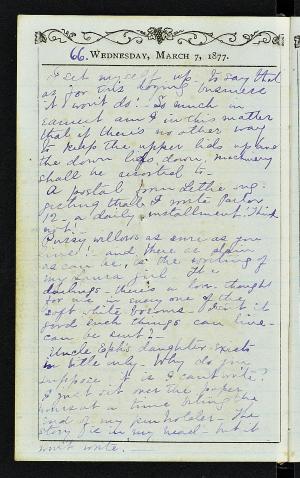 66. WEDNESDAY, MARCH 7, 1877.
I set myself up to say that
as for this boying business
it won't do! So much in
earnest am I in this matter
that if there's no other way
to keep the upper lids up and
the down lids down, machinery
shall be resorted to—
A postal from Lettie sug-
gesting that I write Parlor
12— a daily installment. Think
not!
Pussy willows as sure as you
live! and there as plain
as can be, is the writing of
my girl. The
darlings— there's a love thought
for me in every one of the
soft white bosoms. Isn't it
good such things can live—
can be sent?
Uncle Eph's daughter exists
in title only. Why do you
suppose it is I can't write?
I just sit over the paper
hours at a time biting the
end of my penholder— The
story lie in my head— but it
won't write.